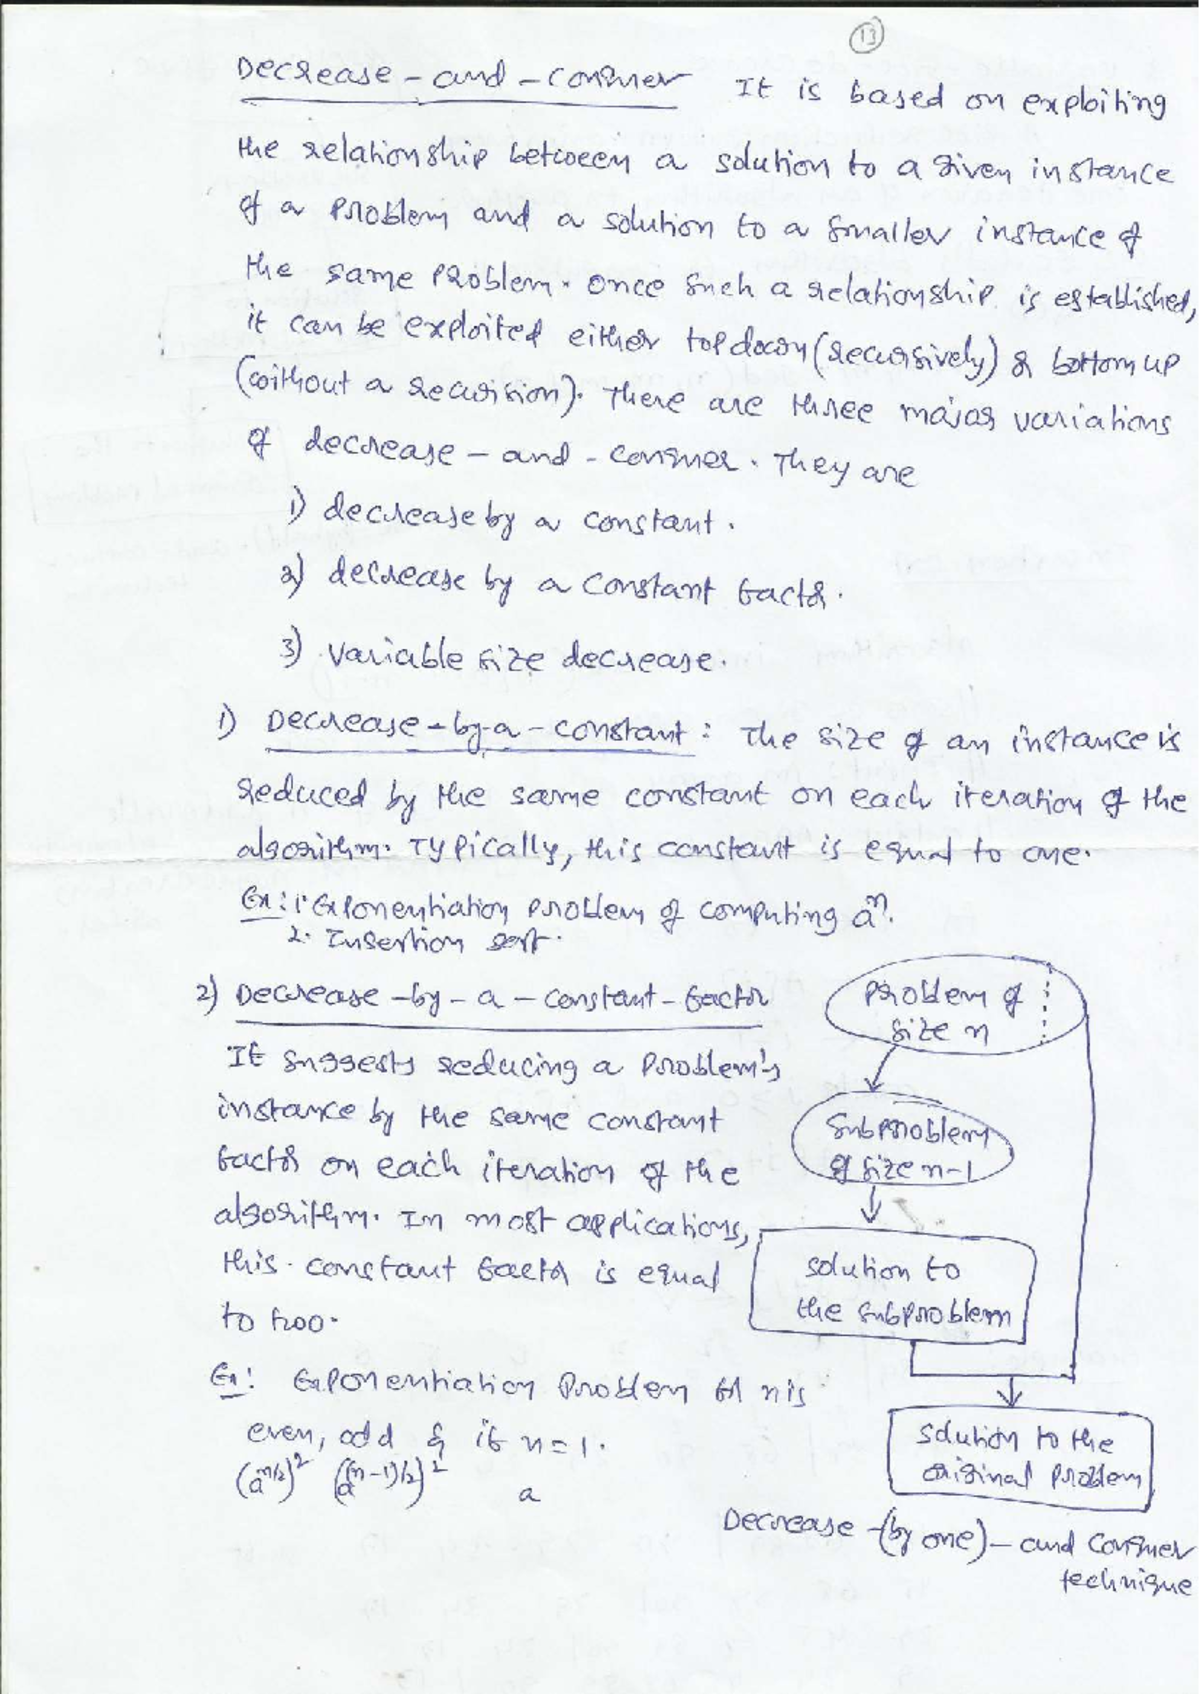 13
Decrease-and-conquer It is based on exploiting
the relationship between a solution to a given instance
of a problem and a solution to a smaller instance of
the same problem. once such a relationship is established,
it can be exploited either topdown (recursively) or bottom up
(without a recursion). There are three major variations
of decrease-and-conquer. They are
1) decrease by a constant.
2) decrease by a constant factor.
3) variable size decrease.
1) Decrease-by-a-constant: The size of an instance is
reduced by the same constant on each iteration of the
algorithm. Typically, this constant is equal to one.
Ex: 1. Exponentiation problem of computing aⁿ.
2. Insertion sort.
2) Decrease-by-a-constant-factor
It suggests reducing a problem's
instance by the same constant
factor on each iteration of the
algorithm. In most applications,
this constant factor is equal
to two.
Ex: Exponentiation Problem of n is
even, odd & if n=1.
(a^(n/2))² (a^((n-1)/2))² a
Problem of
size n
Subproblem
of size n-1
solution to
the subproblem
solution to the
original problem
Decrease-(by one)-and conquer
technique